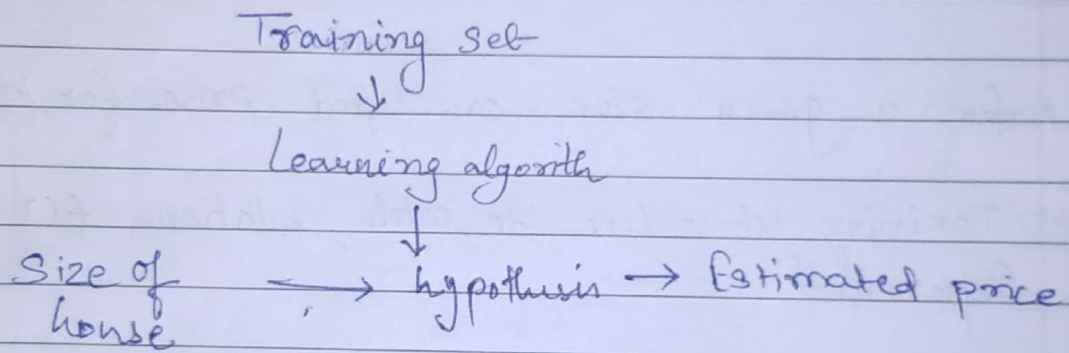 Training set
↓
Learning algorith
↓
Size of → hypothesis → Estimated price
house